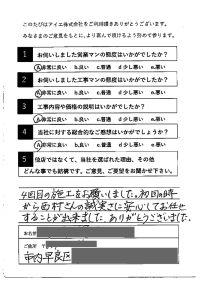 このたびはアイエ株式会社をご利用頂きありがとうございます。
みなさまのご意見をもとに、より喜んで頂けるよう努めて参ります。
1 お伺いしました営業マンの態度はいかがでしたか?
A.非常に良い b.良い c.普通 d.少し悪い e.悪い
2 お伺いしました工事マンの態度はいかがでしたか?
A.非常に良い b.良い c.普通 d.少し悪い e.悪い
3 工事内容や価格の説明はいかがでしたか?
A.非常に良い b.良い c.普通 d.少し悪い e.悪い
4 当社に対する総合的なご感想はいかがでしょうか?
A.非常に良い b.良い c.普通 d.少し悪い e.悪い
5 他店ではなくて、当社を選ばれた理由、その他
どんな事でも結構です。ご意見、ご要望をお聞かせ下さい。
4回目の施工をお願いしました。初回の時
から西村さんの誠実さに安心してお任せ
することが出来ました ありがとうございました。
お名前
ご住所 〒
市内早良区